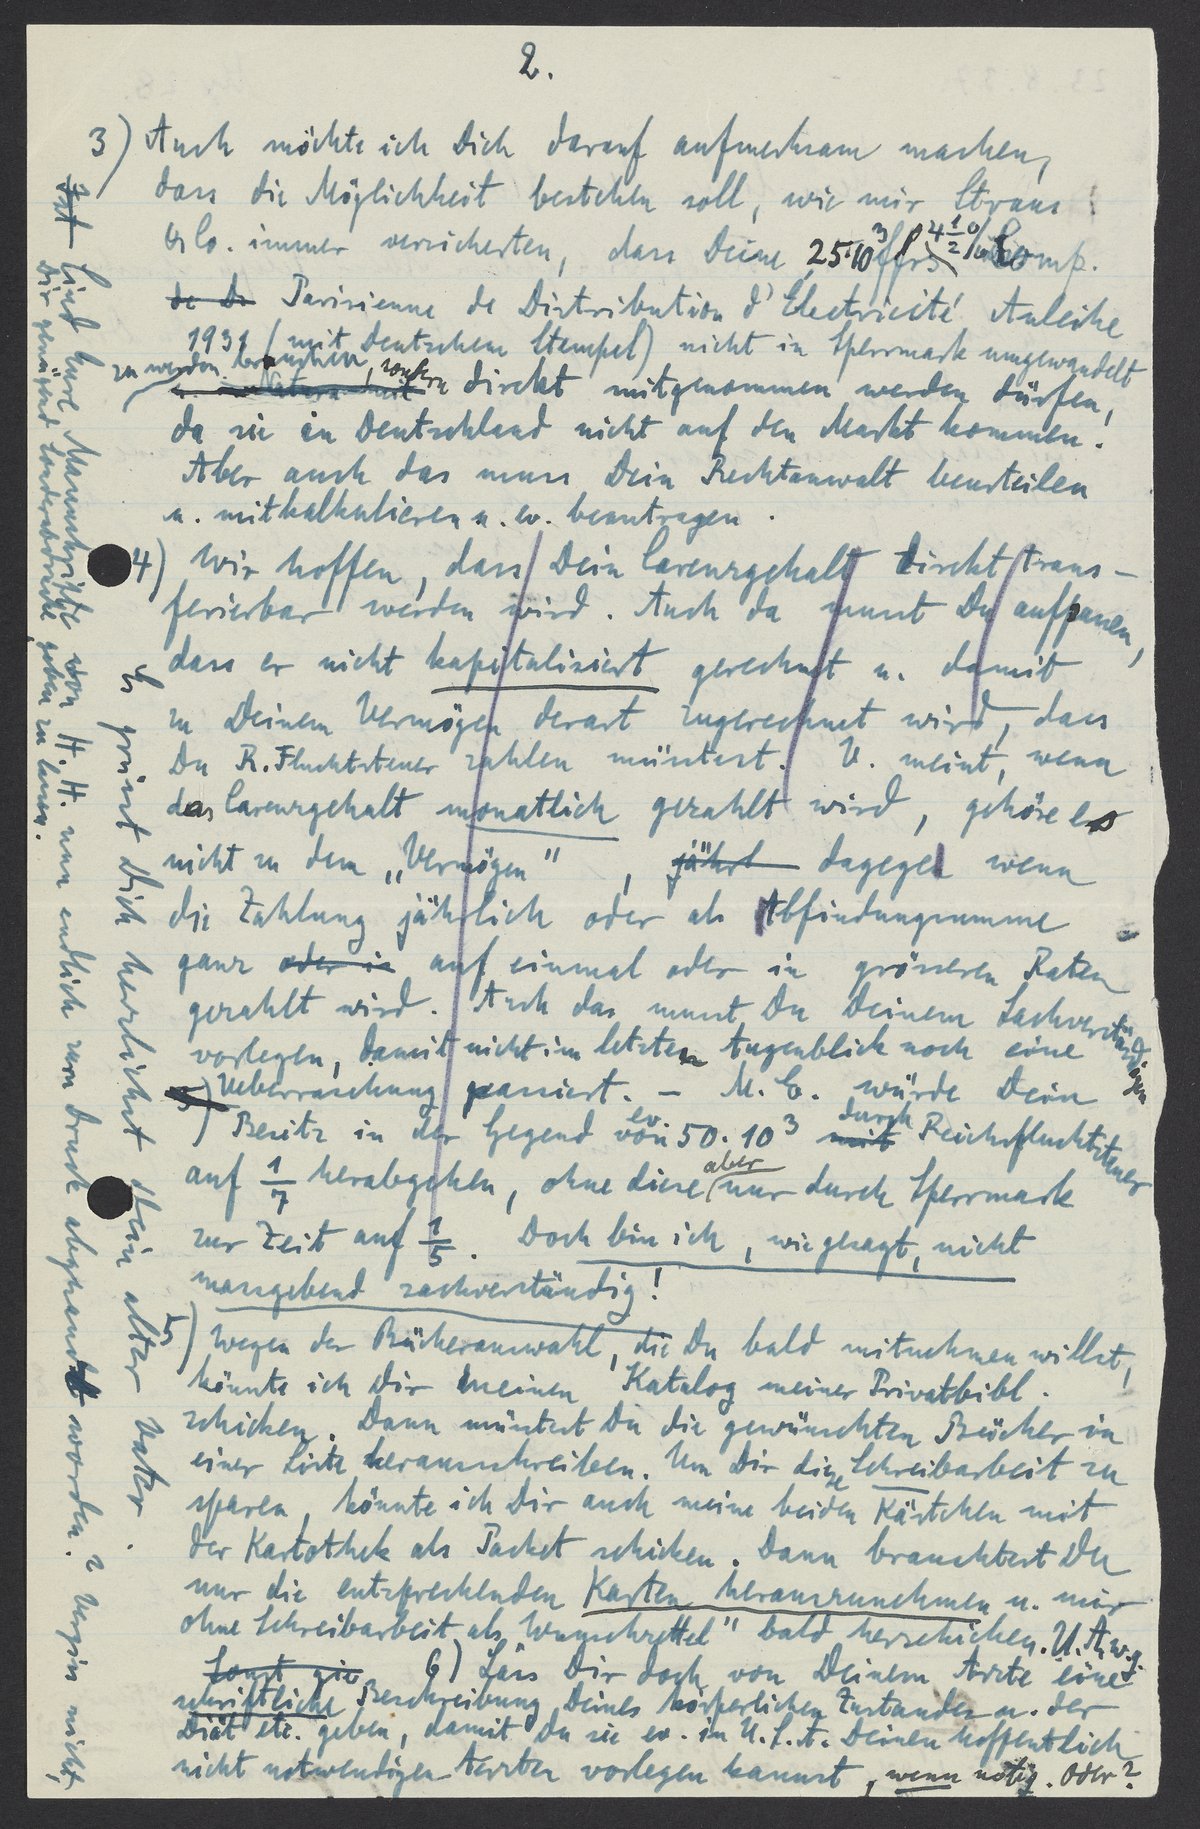 2.
3) Auch möchte ich Dich darauf aufmerksam machen,
dass die Möglichkeit bestehen soll, wie mir Straus
& Co. immer versicherten, dass Deine 25·10³ ffrs 4 1/2 % Comp.
de Di Parisienne de Distribution d'Électricité Anleihe
1931 (mit deutschem Stempel) nicht in Sperrmark umgewandelt
zu werden brauchen, sondern direkt mitgenommen werden dürfen,
da sie in Deutschland nicht auf den Markt kommen.
Aber auch das muss Dein Rechtsanwalt beurteilen
u. mitkalkulieren u. ev. beantragen.
4) Wir hoffen, dass Dein Carenzgehalt direkt trans-
ferierbar werden wird. Auch da musst Du aufpassen,
dass er nicht kapitalisiert gerechnet u. damit
zu Deinem Vermögen derart zugerechnet wird, dass
Du R. Fluchtsteuer zahlen müsstest. U. meint, wenn
das Carenzgehalt monatlich gezahlt wird, gehöre es
nicht zu dem „Vermögen", jährl dagegen wenn
die Zahlung jährlich oder als Abfindungssumme
ganz oder in auf einmal oder in grösseren Raten
gezahlt wird. Auch das musst Du Deinem Sachverständigen
vorlegen, damit nicht im letzten Augenblick noch eine
Ueberraschung passiert. – M. E. würde Dein
Besitz in der Gegend von ev. 50·10³ mit durch Reichsfluchtsteuer
auf 1/7 herabgehen, ohne diese aber nur durch Sperrmark
zur Zeit auf 1/5. Doch bin ich, wie gesagt, nicht
massgebend sachverständig!
5) Wegen der Bücherauswahl, die Du bald mitnehmen willst,
könnte ich Dir meinen Katalog meiner Privatbibl.
schicken. Dann müsstest Du die gewünschten Bücher in
einer Liste herausschreiben. Um Dir diese Schreibarbeit zu
sparen, könnte ich Dir auch meine beiden Kästchen mit
der Kartothek als Packet schicken. Dann brauchtest Du
nur die entsprechenden Karten herauszunehmen u. mir
ohne Schreibarbeit als „Wunschzettel" bald herschicken. U. A. w. g.
Sonst gie 6) Lass Dir doch von Deinem Arzte eine
schriftliche Beschreibung Deines körperlichen Zustandes u. der
Diät etc. geben, damit Du sie ev. in U.S.A. Deinen hoffentlich
nicht notwendigen Aerzten vorlegen kannst, wenn nötig. Oder?
Es grüsst Dich herzlichst Dein alter Vater.
Ist Sind Eure Manuskripte von H. H. nun endlich zum Druck abgesandt worden? Vergiss nicht,
Dir genügend Sonderabdrücke geben zu lassen.